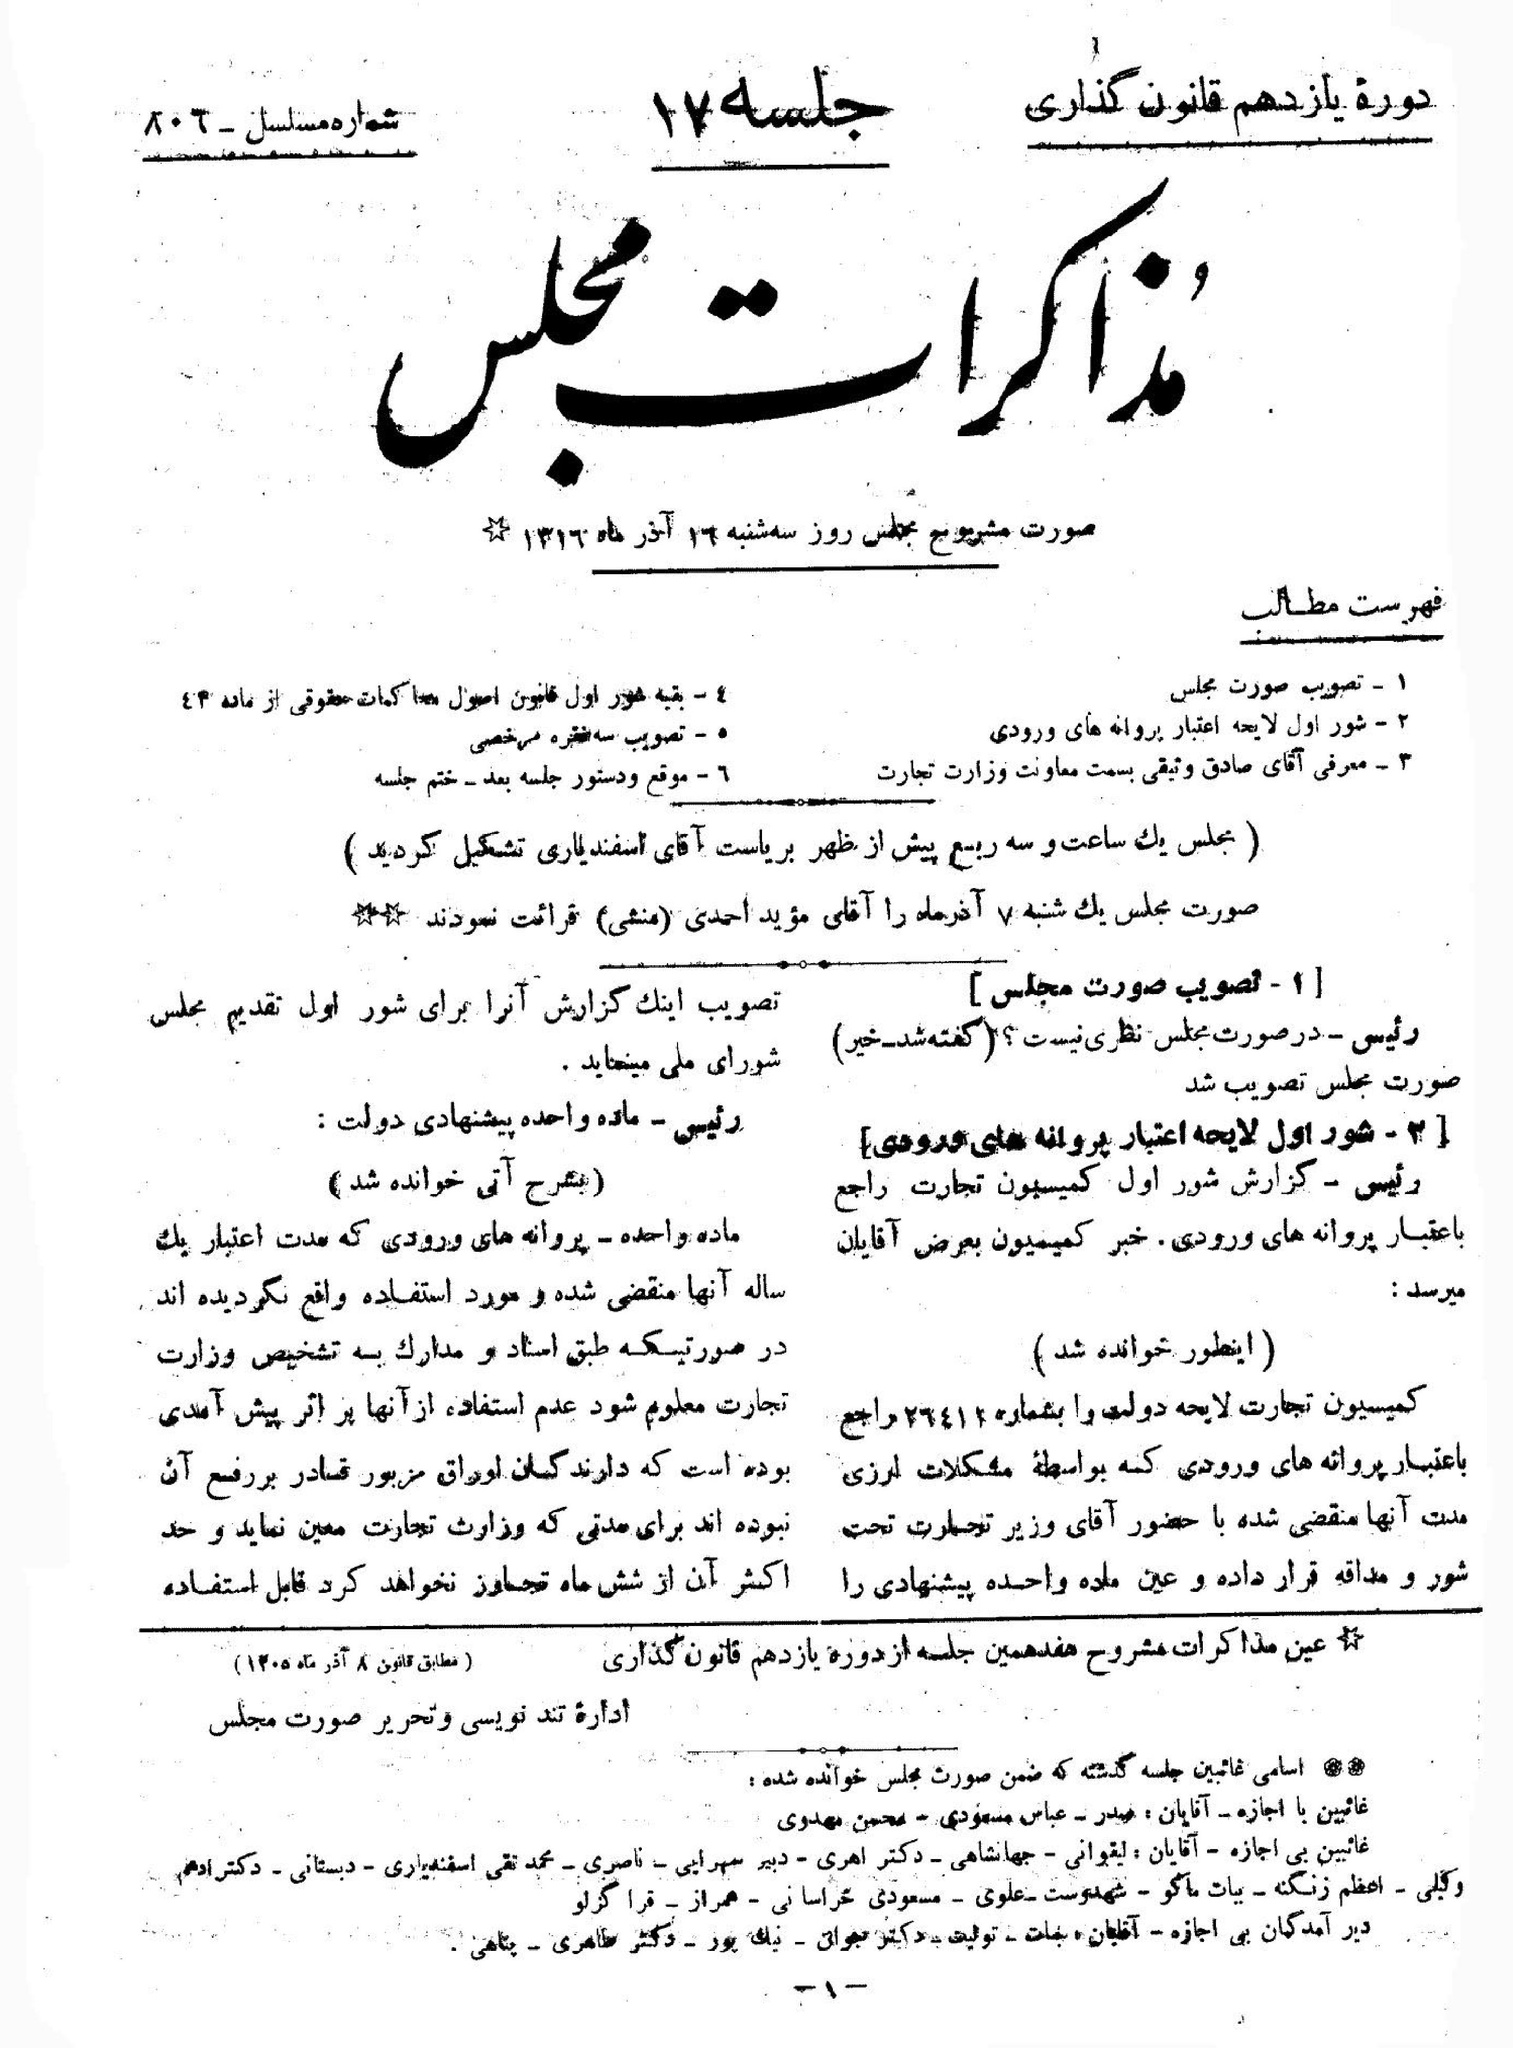 دورهٔ یازدهم قانون گذاری
جلسه ۱۷
شماره مسلسل ـ ۸۰۶
مذاکرات مجلس
صورت مشروح مجلس روز سه‌شنبه ۱۶ آذر ماه ۱۳۱۶ ☆
فهرست مطالب
۱ ـ تصویب صورت مجلس
۲ - شور اول لایحه اعتبار پروانه های ورودی
۳ ـ معرفی آقای صادق وثیقی بسمت معاونت وزارت تجارت
٤ - بقیه شور اول قانون اصول محاکمات حقوقی از ماده ٤۳
۵ - تصویب سه فقره مرخصی
٦ - موقع و دستور جلسه بعد ـ ختم جلسه
( مجلس یك ساعت و سه ربع پیش از ظهر بریاست آقای اسفندیاری تشکیل گردید )
صورت مجلس یك شنبه ۷ آذرماه را آقای مؤید احمدی (منشی) قرائت نمودند ☆☆
[ ۱ - تصویب صورت مجلس ]
رئیس ـ در صورت مجلس نظری نیست ؟ (گفته شد ـ خیر)
صورت مجلس تصویب شد
[ ۲ - شور اول لایحه اعتبار پروانه های ورودی]
رئیس - گزارش شور اول کمیسیون تجارت راجع
باعتبار پروانه های ورودی . خبر کمیسیون بعرض آقایان
میرسد :
( اینطور خوانده شد )
کمیسیون تجارت لایحه دولت را بشماره راجع
باعتبار پروانه های ورودی که بواسطهٔ مشکلات ارزی
مدت آنها منقضی شده با حضور آقای وزیر تجارت تحت
شور و مداقه قرار داده و عین ماده واحده پیشنهادی را
تصویب اینك گزارش آنرا برای شور اول تقدیم مجلس
شورای ملی مینماید .
رئیس ـ ماده واحده پیشنهادی دولت :
( بشرح آتی خوانده شد )
ماده واحده ـ پروانه های ورودی که مدت اعتبار یك
ساله آنها منقضی شده و مورد استفاده واقع نگردیده اند
در صورتیکه طبق اسناد و مدارك به تشخیص وزارت
تجارت معلوم شود عدم استفاده از آنها بر اثر پیش آمدی
بوده است که دارندگان اوراق مزبور قادر بر رفع آن
نبوده اند برای مدتی که وزارت تجارت معین نماید و حد
اکثر آن از شش ماه تجاوز نخواهد کرد قابل استفاده
☆ عین مذاکرات مشروح هفدهمین جلسه از دوره یازدهم قانون گذاری ( مطابق قانون ۸ آذر ماه ۱۳۰۵ )
ادارهٔ تند نویسی و تحریر صورت مجلس
❀❀ اسامی غائبین جلسه گذشته که ضمن صورت مجلس خوانده شده :
غائبین با اجازه ـ آقایان : صدر ـ عباس مسعودی - محسن مهدوی
غائبین بی اجازه - آقایان : لیقوانی - جهانشاهی ـ دکتر اهری - دبیر سهرابی ـ ناصری ـ محمد تقی اسفندیاری - دبستانی - دکتر ادهم
وکیلی - اعظم زنگنه ـ بیات ماکو - شهدوست ـ علوی ـ مسعودی خراسانی - همراز ـ قراگزلو
دیر آمدگان بی اجازه - آقایان : بیات ـ تولیت ـ دکتر ـ نیك پور ـ دکتر طاهری ـ پناهی .
ـ ۱ ـ